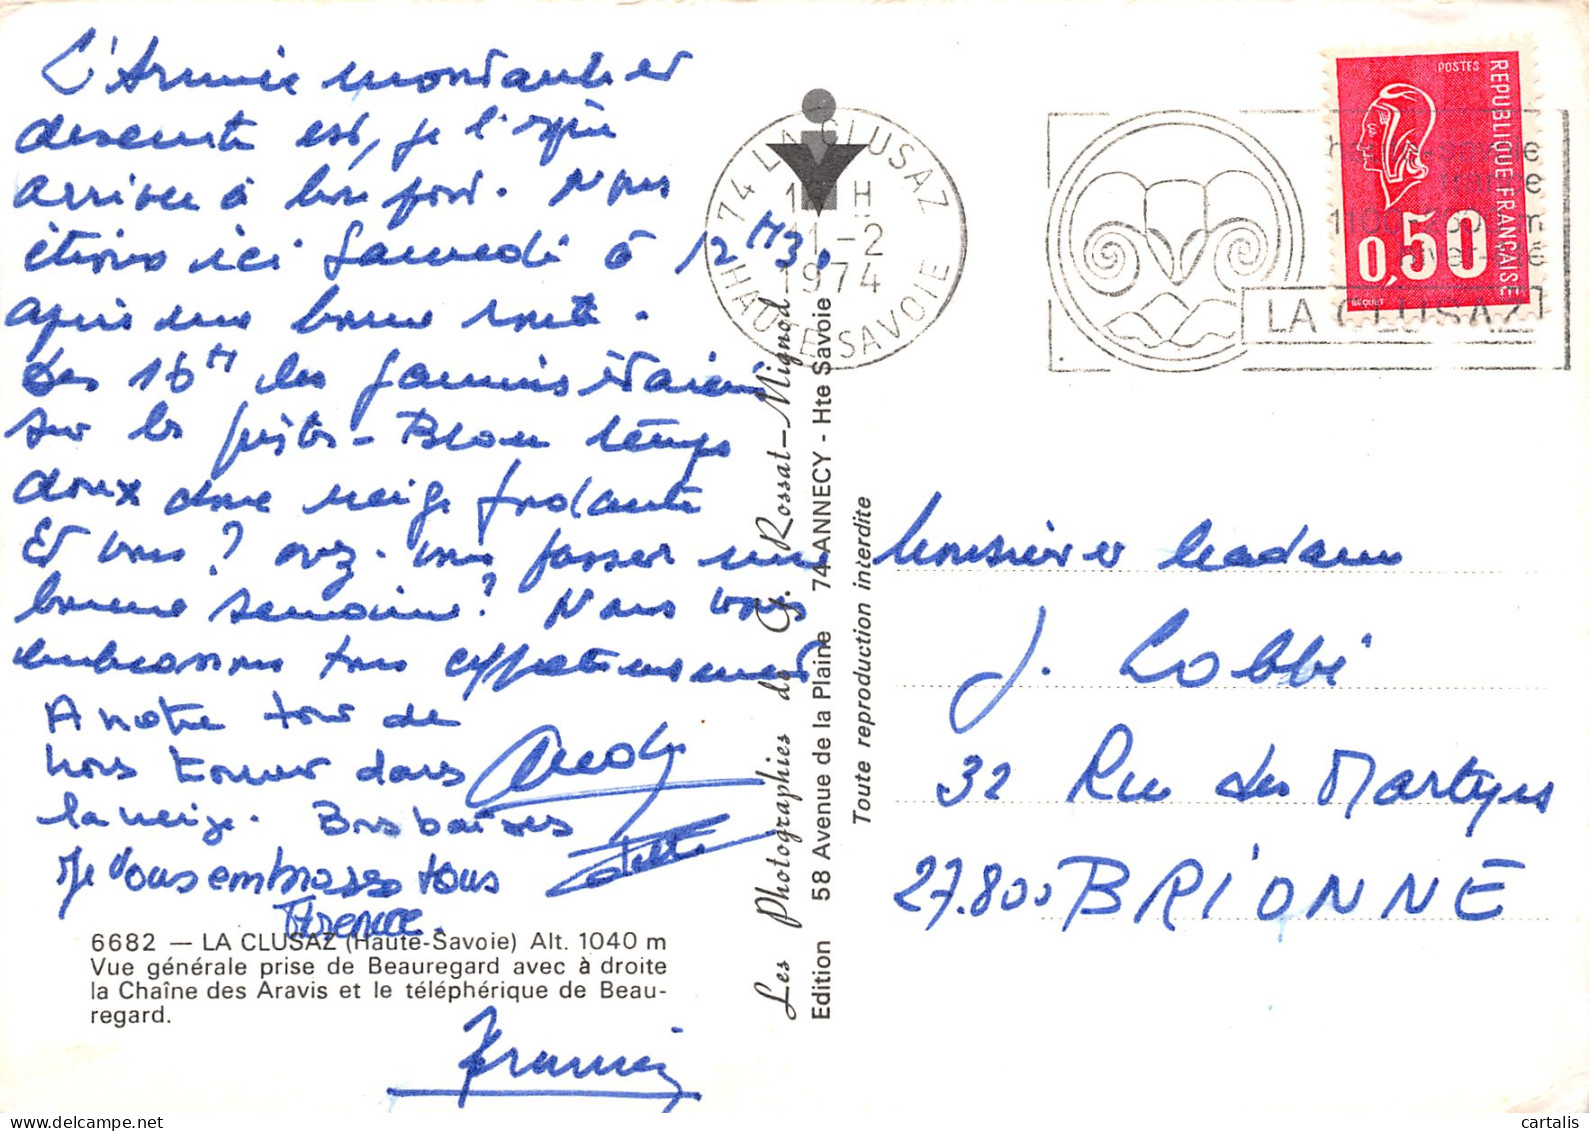 L'Armée
descente est, je l'espère
arrivée à bon port. Nous
étions ici Samedi à 12H30
après une bonne route.
Dès 16H les gamins étaient
sur les pistes - Beau temps
doux donc neige fondante
Et vous? avez-vous passer une
bonne semaine? Nous vous
embrassons tous affectueusement
A notre tour de
nous trouver dans
la neige. Bons baisers
Je vous embrasse tous
Florence.
6682 — LA CLUSAZ (Haute-Savoie) Alt. 1040 m
Vue générale prise de Beauregard avec à droite
la Chaîne des Aravis et le téléphérique de Beau-
regard.
Francis
Les Photographies de G. Rossat-Mignod
Edition 58 Avenue de la Plaine 74-ANNECY - Hte Savoie
Toute reproduction interdite
74 LA CLUSAZ
H
11-2
1974
HAUTE-SAVOIE
LA CLUSAZ
POSTES
REPUBLIQUE FRANÇAISE
0,50
BEQUET
Monsieur et Madame
J. Lobbé
32 Rue des Martyrs
27.800 BRIONNE
cartalis